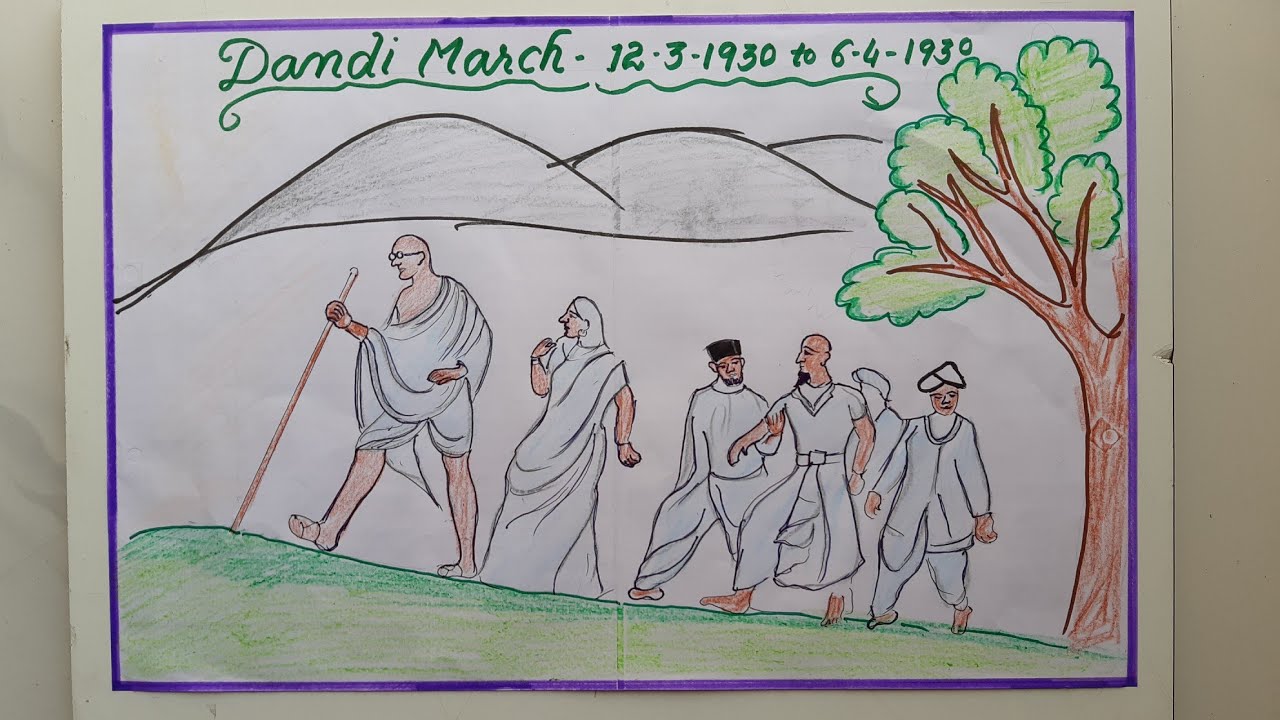 Dandi March - 12-3-1930 to 6-4-1930